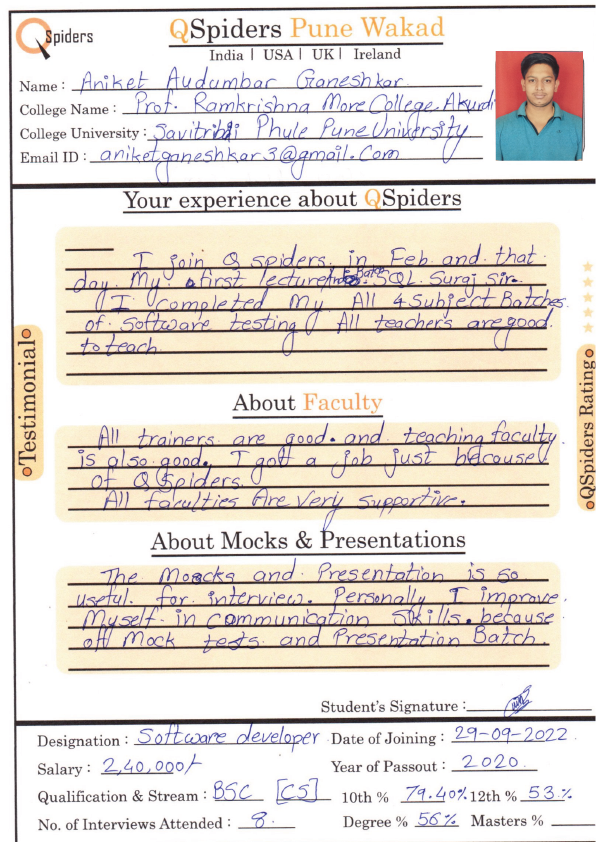 Spiders
QSpiders Pune Wakad
India | USA | UK | Ireland
Name : Aniket Audumbar Ganeshkar
College Name : Prof. Ramkrishna More College, Akurdi
College University : Savitribai Phule Pune University
Email ID : aniketganeshkar3@gmail.com
Your experience about QSpiders
I join Q spiders in Feb and that
day My first lecture Batch SQL Suraj Sir.
I completed My All 4 Subject Batches
of Software testing All teachers are good
to teach
Testimonial
QSpiders Rating
About Faculty
All trainers are good. and teaching faculty
is also good. I gott a job just because
of Q Spiders.
All faculties Are Very Supportive.
About Mocks & Presentations
The Moacks and Presentation is so
useful for interview. Personally I improve
Myself in communication Skills. because
off Mock tests and Presentation Batch
Student's Signature :
Designation : Software developer Date of Joining : 29-09-2022
Salary : 2,40,000/- Year of Passout : 2020
Qualification & Stream : BSC [CS] 10th % 79.40% 12th % 53.%
No. of Interviews Attended : 8. Degree % 56% Masters %